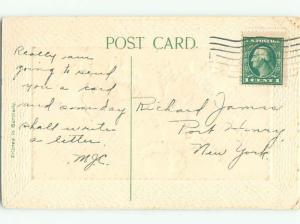 POST CARD.
Really am
going to send
you a card
and someday
shall write
a letter.
M.J.C.
Richard James
Port Henry
New York.
U.S. POSTAGE
1 CENT 1
Printed in Germany.